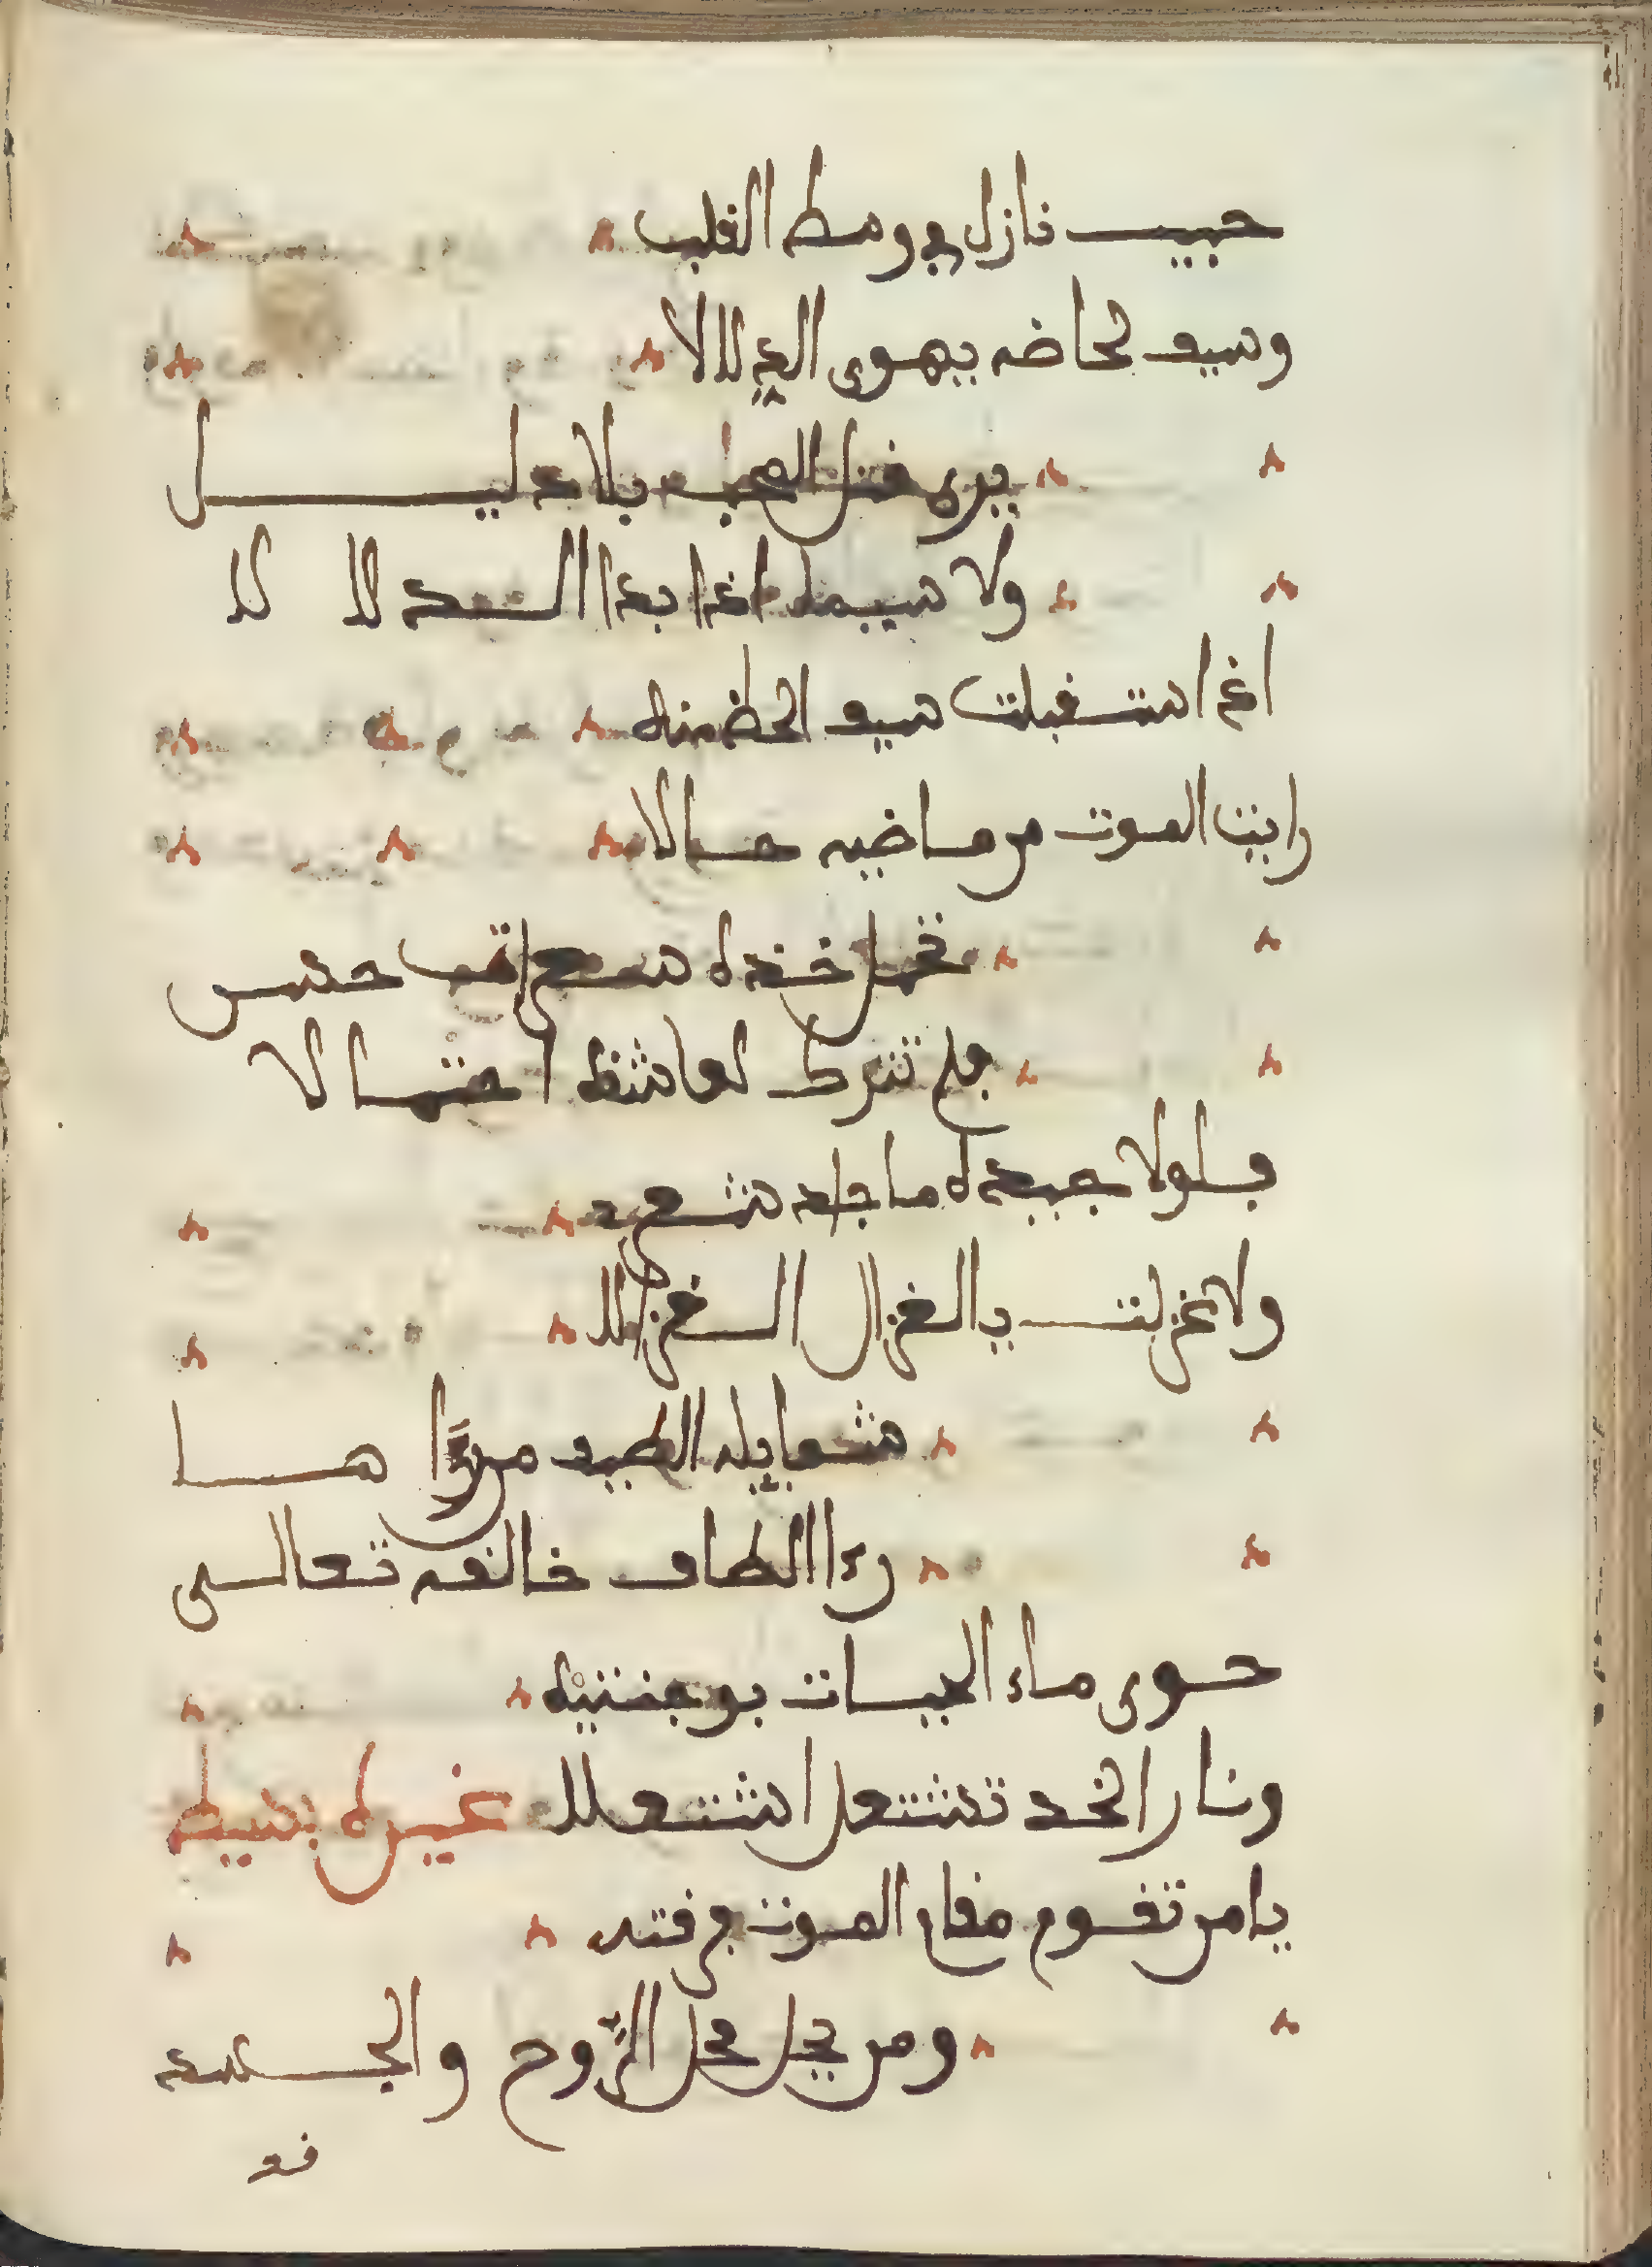 حبيب نازل في وسط القلب
وسيف لحاضه يهوى الدلالا
يرى قتل المحب بلا دليل
ولا سيما اذا بدا السدلالا
اذا استقبلت سيف الحظ منه
رايت الموت من ماضيه سالا
خده
فلم تترك لعاشقه احتمالا
فلولا جيده ما جاد شعري
ولا غزلت بالغزال الغزالا
شمايله الطيف من رءاها
رءا الطاف خالقه تعالى
حوى ماء الحيات بوجنتيه
ونار الخد تشتعل اشتعالا غيره بسيط
يا من تقوم مقام الموت فرقته
ومن يحل محل الروح والجسد
قد